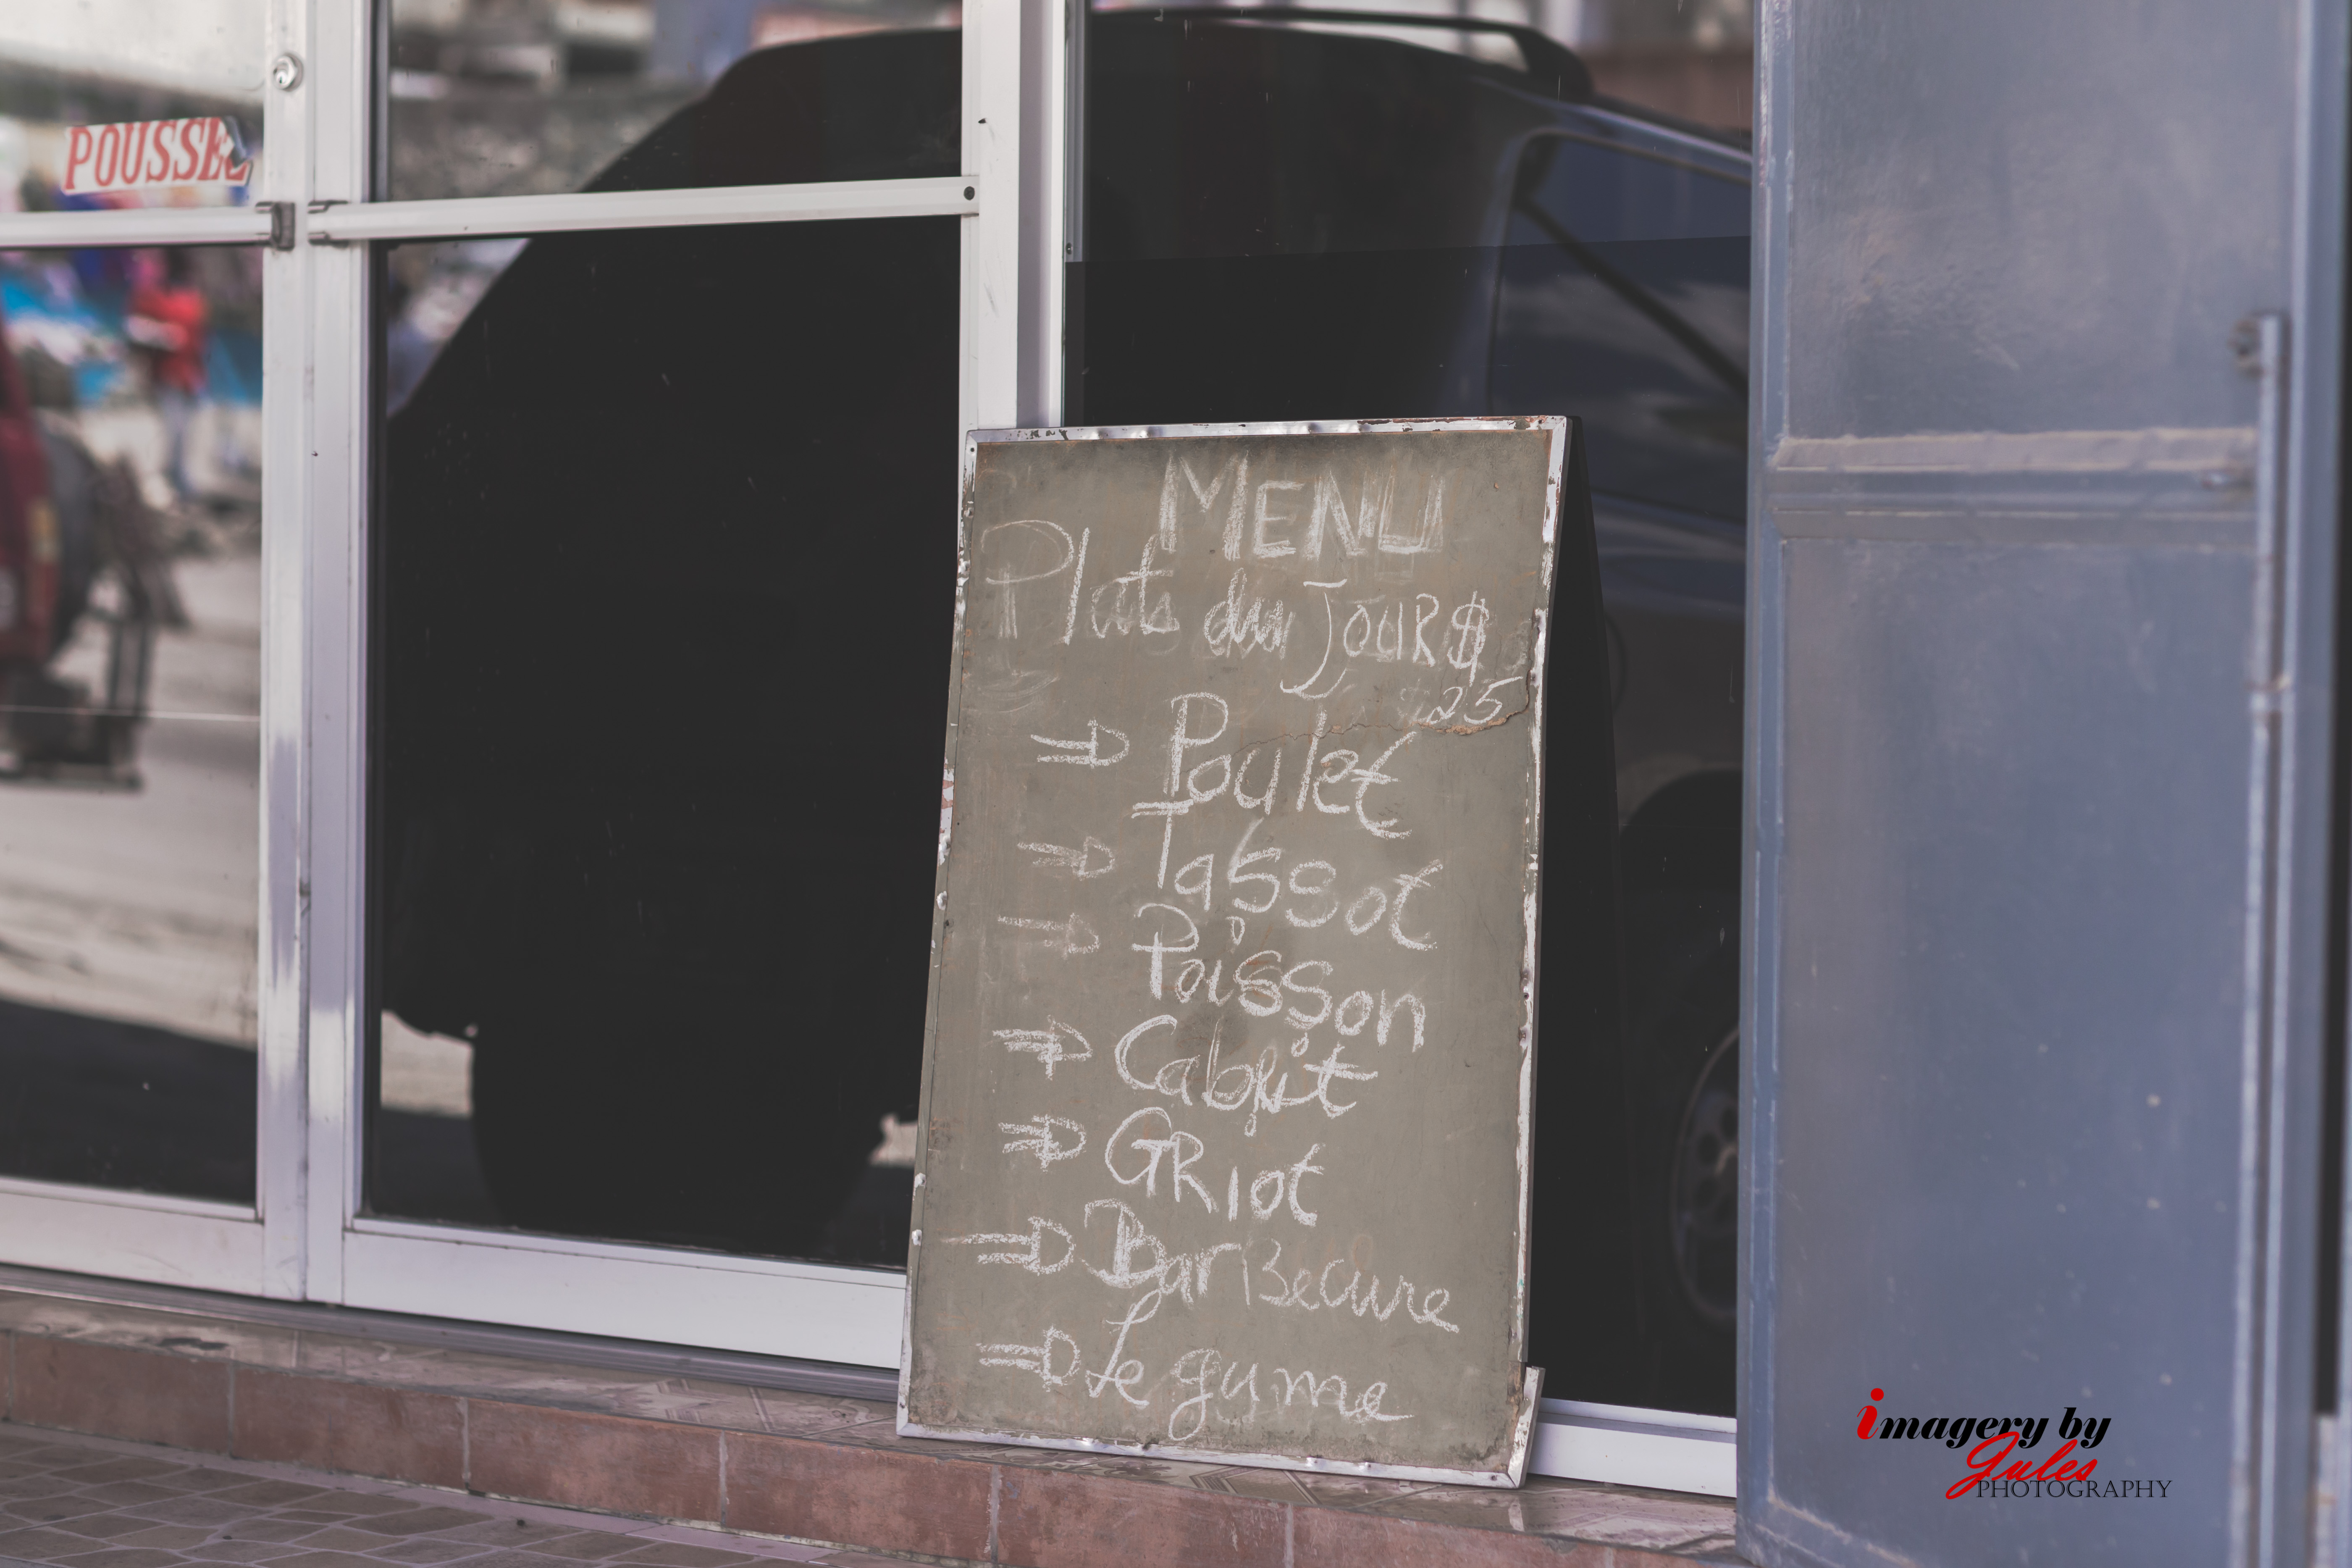 POUSSEZ
MENU
Plats du JOUR $
25
⇒ Poulet
⇒ Tassot
⇒ Poisson
⇒ Cabrit
⇒ GRiot
⇒ BarBecure
⇒ Le gume
imagery by
Jules
PHOTOGRAPHY